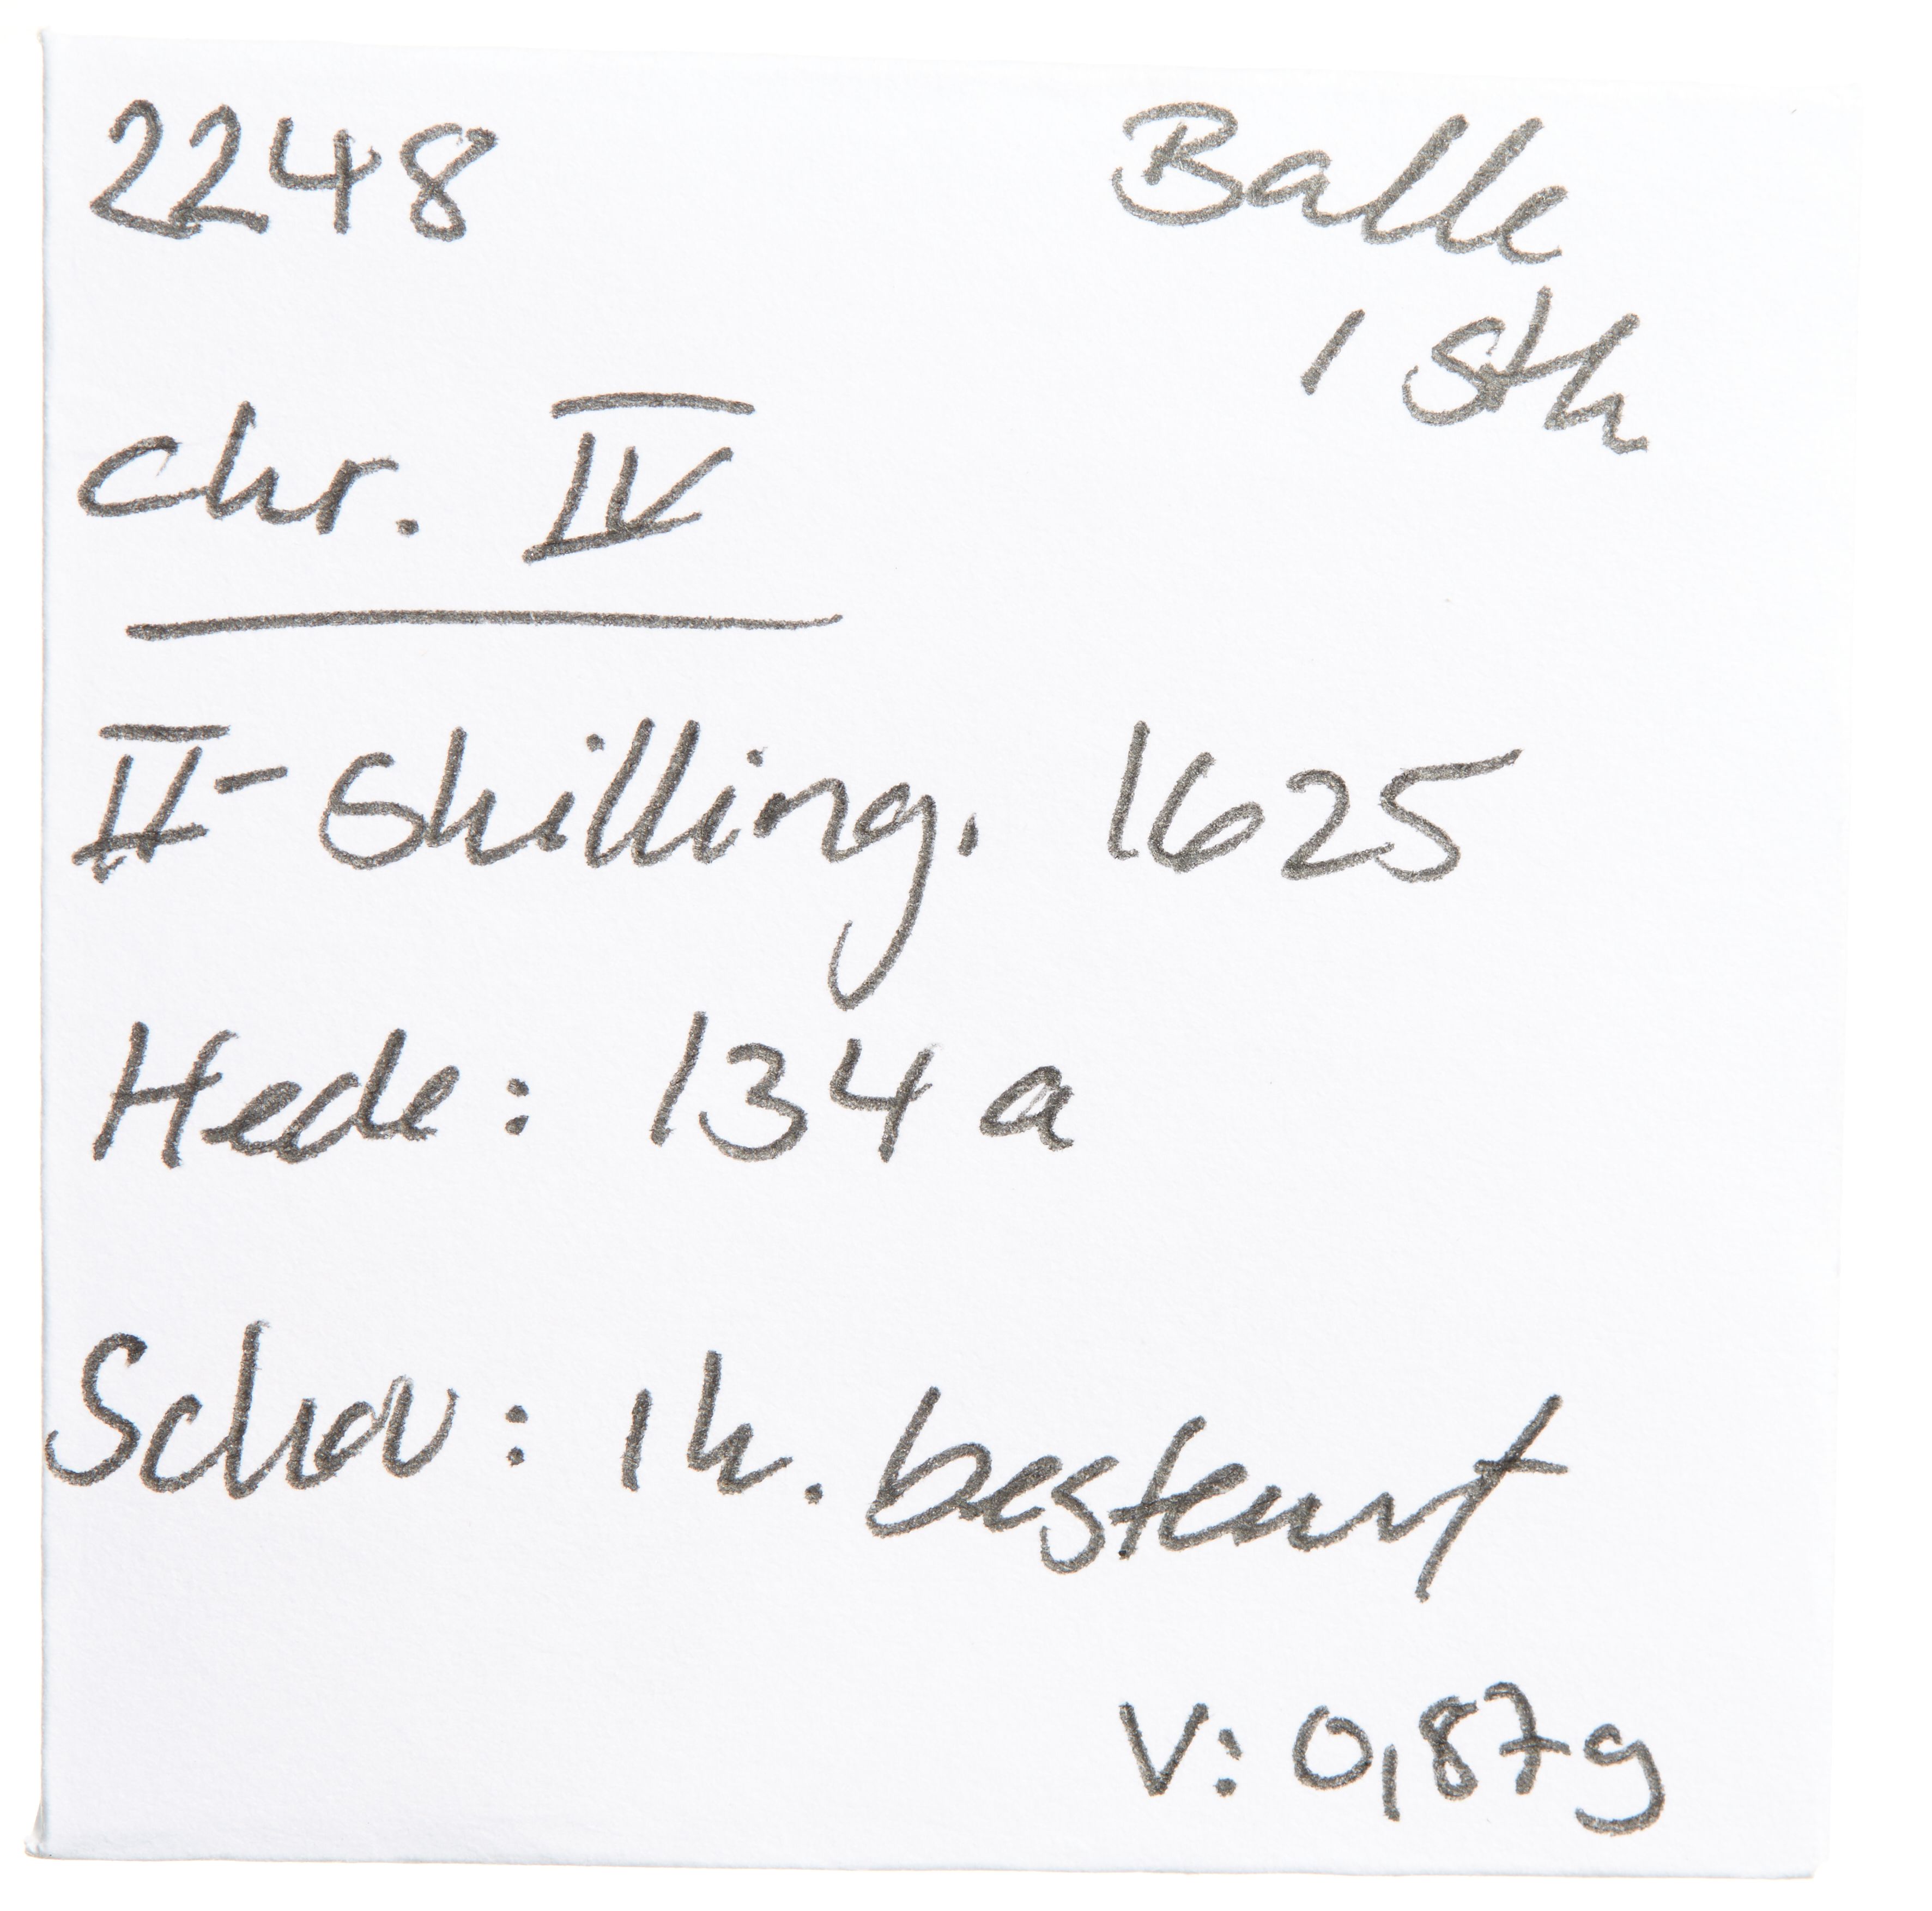 2248
Balle
1 Stk
Chr. IV
II-Skilling. 1625
Hede: 134 a
Schou: ik. bestemt
V: 0,87g